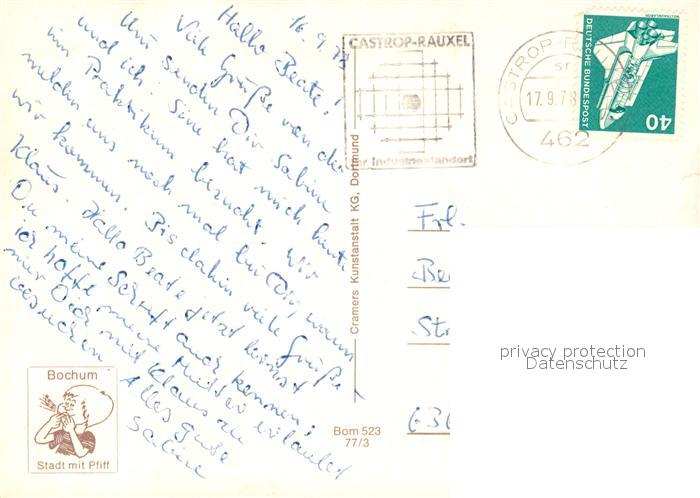 16.9.78
Hallo Beate!
Viele Grüße von der
Uni senden Dir Sabine
und ich. Sine hat mich heute
im Praktikum besucht. Wir
melden uns noch mal bei Dir, wann
wir kommen. Bis dahin viele Grüße
Klaus. Hallo Beate jetzt lernst
Du meine Schrift auch kennen!
ich hoffe meine Mutter erlaubt
mir Dich mit Klaus zu
besuchen Alles Gute
Sabine
CASTROP-RAUXEL
der Industriestandort
CASTROP-R
17.9.78
462
DEUTSCHE BUNDESPOST
40
Cramers Kunstanstalt KG, Dortmund
Frl.
Be
Str
privacy protection
Datenschutz
636
Bochum
Stadt mit Pfiff
Bom 523
77/3